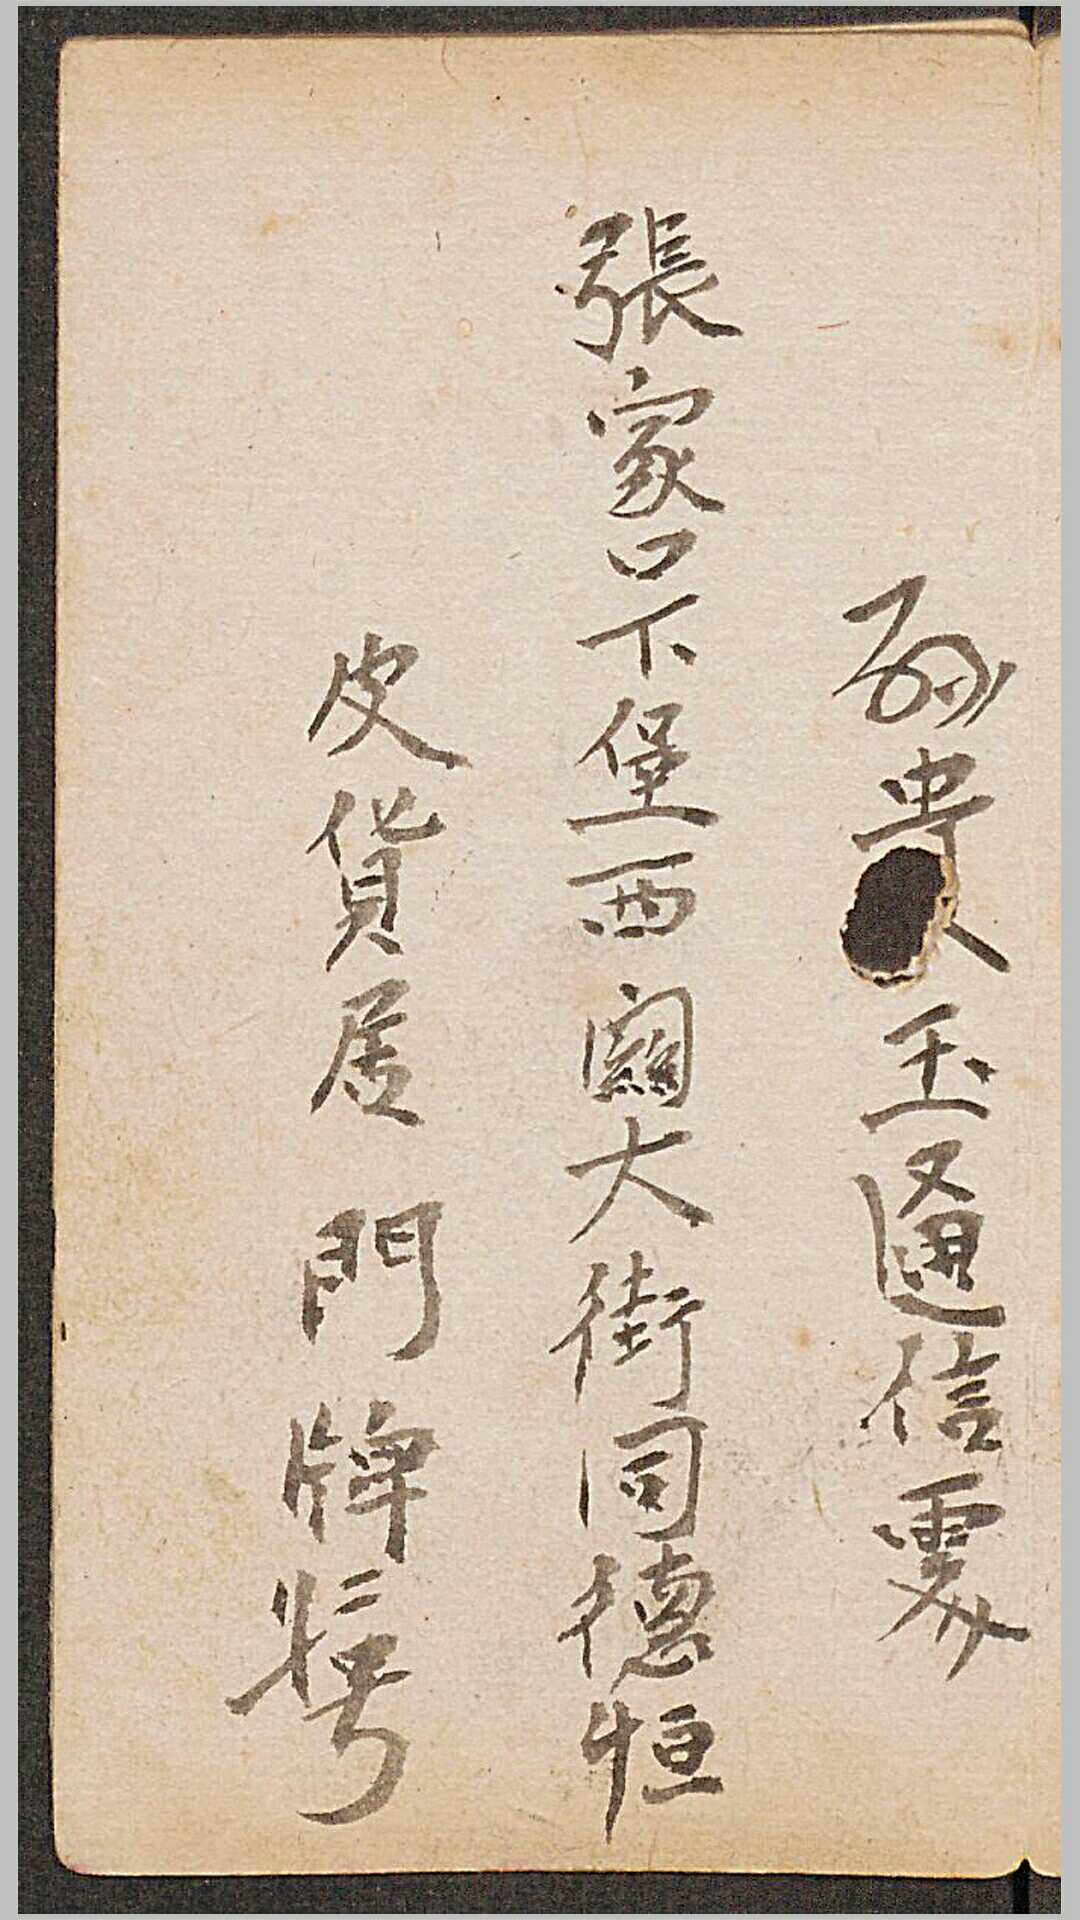 貴玉通信處
張家口下堡西關大街同德恒
皮貨居門牌号